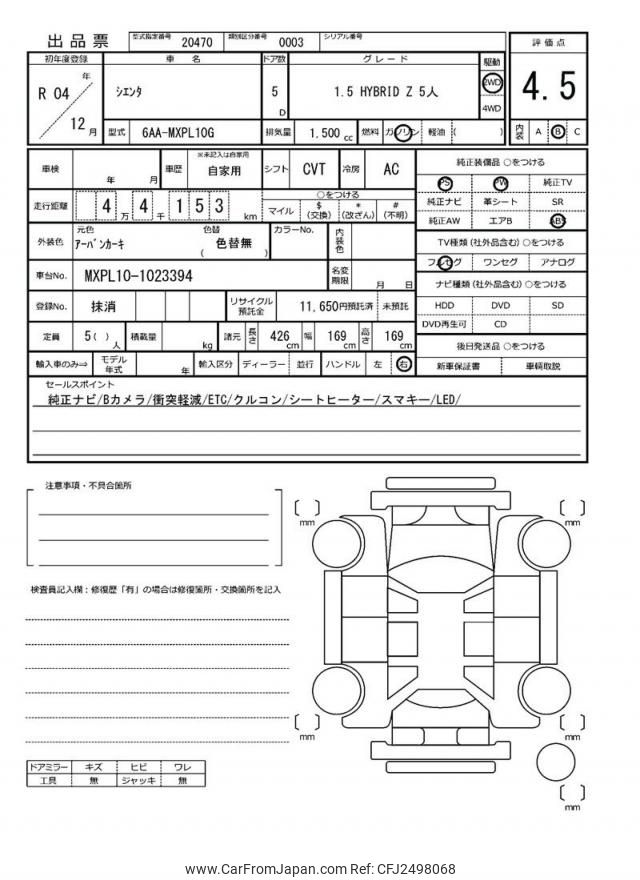 出品票 型式指定番号 20470 類別区分番号 0003 シリアル番号
初年度登録 車名 ドア数 グレード 駆動 評価点
R 04 年 12 月 シエンタ 5 D 1.5 HYBRID Z 5人 2WD 4WD 4.5
型式 6AA-MXPL10G 排気量 1,500 cc 燃料 ガソリン 軽油 ( ) 内装 A B C
車検 年 月 車歴 ※未記入は自家用 自家用 シフト CVT 冷房 AC
純正装備品 ○をつける
PS PW 純正TV
純正ナビ 革シート SR
純正AW エアB ABS
走行距離 4 万 4 千 1 5 3 km
○をつける
マイル $ (交換) * (改ざん) # (不明)
TV種類 (社外品含む) ○をつける
フルセグ ワンセグ アナログ
外装色 元色 アーバンカーキ 色替 色替無 ( ) カラーNo. 内装色
車台No. MXPL10-1023394 名変期限 月 日
ナビ種類 (社外品含む) ○をつける
HDD DVD SD
DVD再生可 CD
登録No. 抹消 リサイクル預託金 11,650円預託済 未預託
定員 5 ( ) 人 積載量 kg 諸元 長さ 426 cm 幅 169 cm 高さ 169 cm
後日発送品 ○をつける
新車保証書 車輌取説
輸入車のみ⇒ モデル年式 年 輸入区分 ディーラー 並行 ハンドル 左 右
セールスポイント
純正ナビ/Bカメラ/衝突軽減/ETC/クルコン/シートヒーター/スマキー/LED/
注意事項・不具合箇所
検査員記入欄：修復歴「有」の場合は修復箇所・交換箇所を記入
[ ] mm
[ ] mm
[ ] mm
[ ] mm
[ ] mm
ドアミラー キズ ヒビ ワレ
工具 無 ジャッキ 無
www.CarFromJapan.com Ref: CFJ2498068